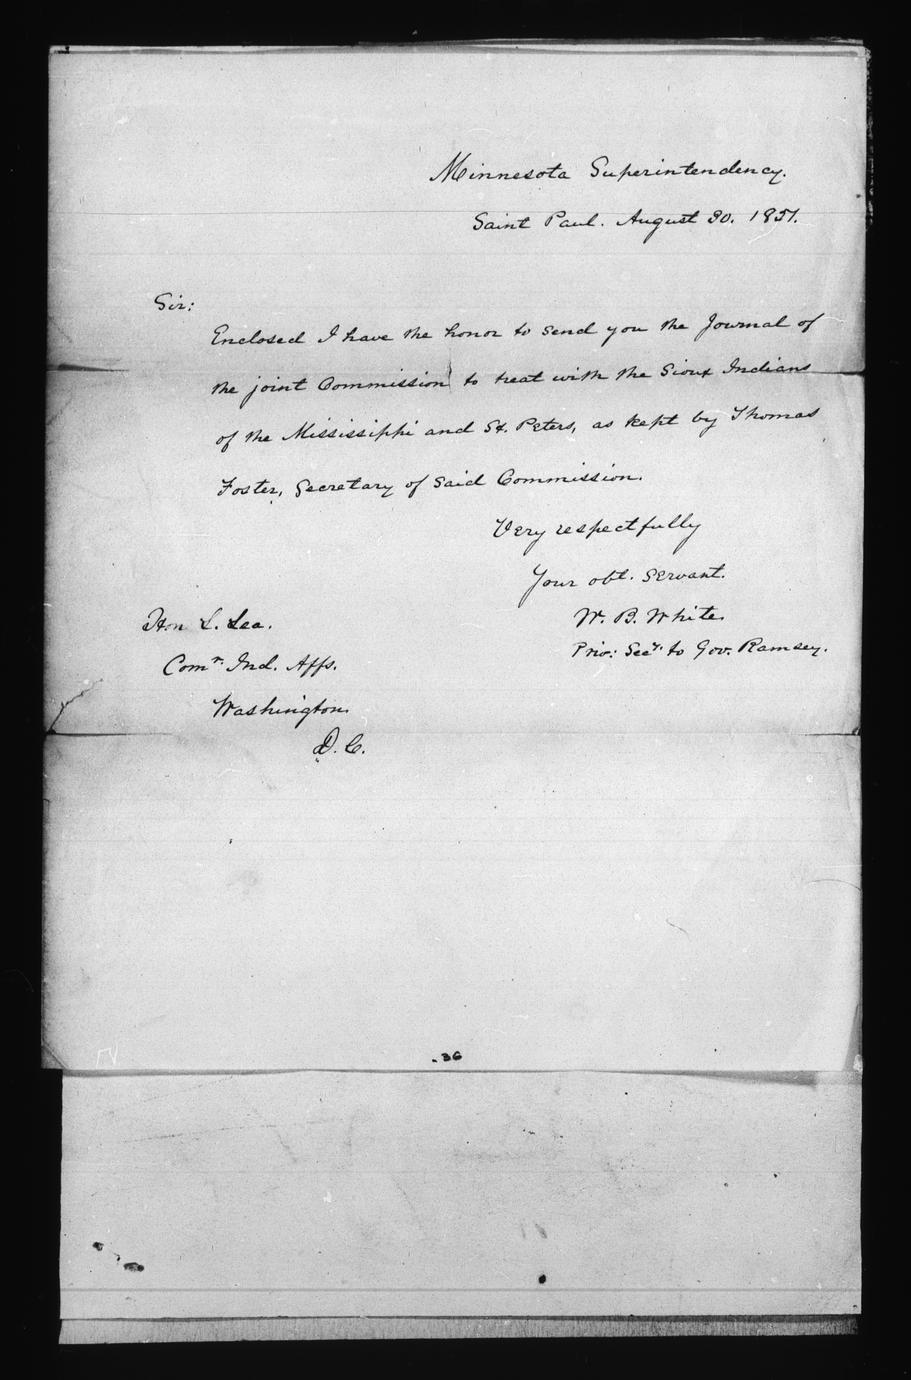 Minnesota Superintendency.
Saint Paul. August 30. 1851.
Sir:
Enclosed I have the honor to send you the Journal of
the joint Commission to treat with the Sioux Indians
of the Mississippi and St. Peters, as kept by Thomas
Foster, Secretary of said Commission.
Very respectfully
Your obt. servant.
W. B. White.
Priv: Secy. to Gov. Ramsey.
Hon L. Lea.
Comr. Ind. Affs.
Washington
D. C.
.36